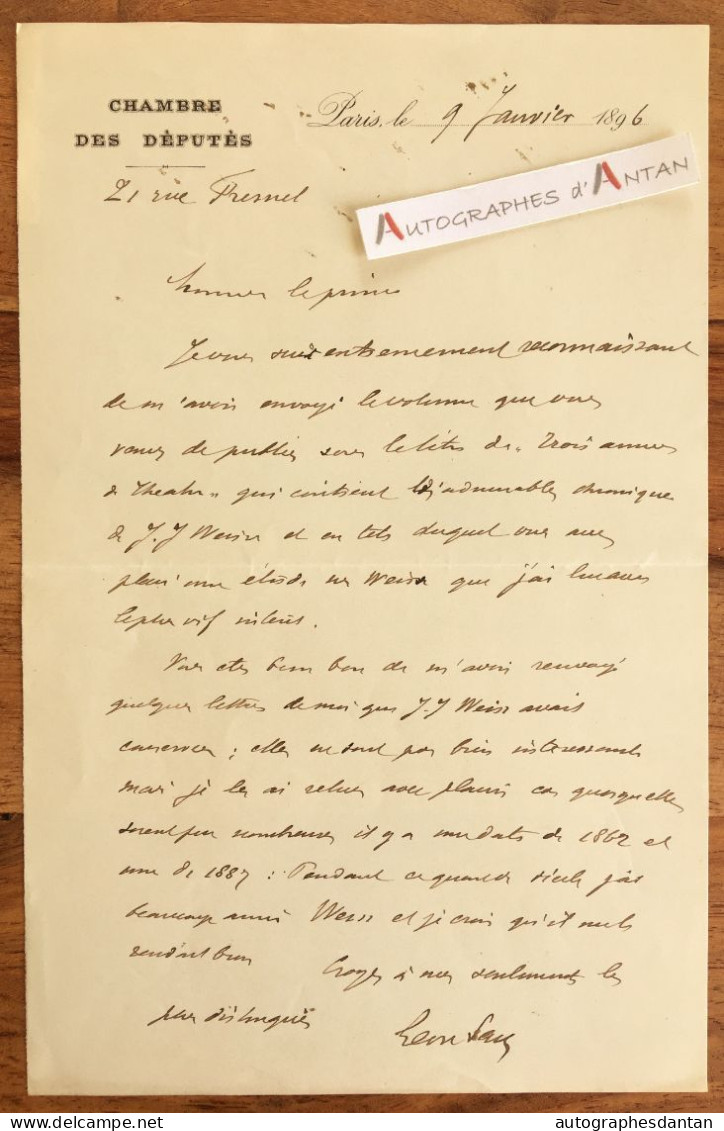 CHAMBRE
DES DÉPUTÉS
Paris, le 9 Janvier 1896
AUTOGRAPHES d'ANTAN
21 rue Fresnel
Monsieur le prince
Je vous suis extremement reconnaissant
de m'avoir envoyé le volume que vous
venez de publier sous le titre de "Trois années
de Theatre" qui contient d'admirables chroniques
de J. J Weiss et en tete duquel vous avez
placé une étude sur Weiss que j'ai lu avec
le plus vif intérêt.
Vous etes bien bon de m'avoir renvoyé
quelques lettres de moi que J. J Weiss avait
conservées ; elles ne sont pas bien intéressantes
mais je les ai relues avec plaisir car quoiqu'elles
soient peu nombreuses il y a une date de 1862 et
une de 1887 : Pendant ce quart de siècle j'ai
beaucoup aimé Weiss et je crois qu'il me le
rendait bien
Croyez à mes sentiments les
plus distingués
Leon Say
delcampe.net
autographesdantan